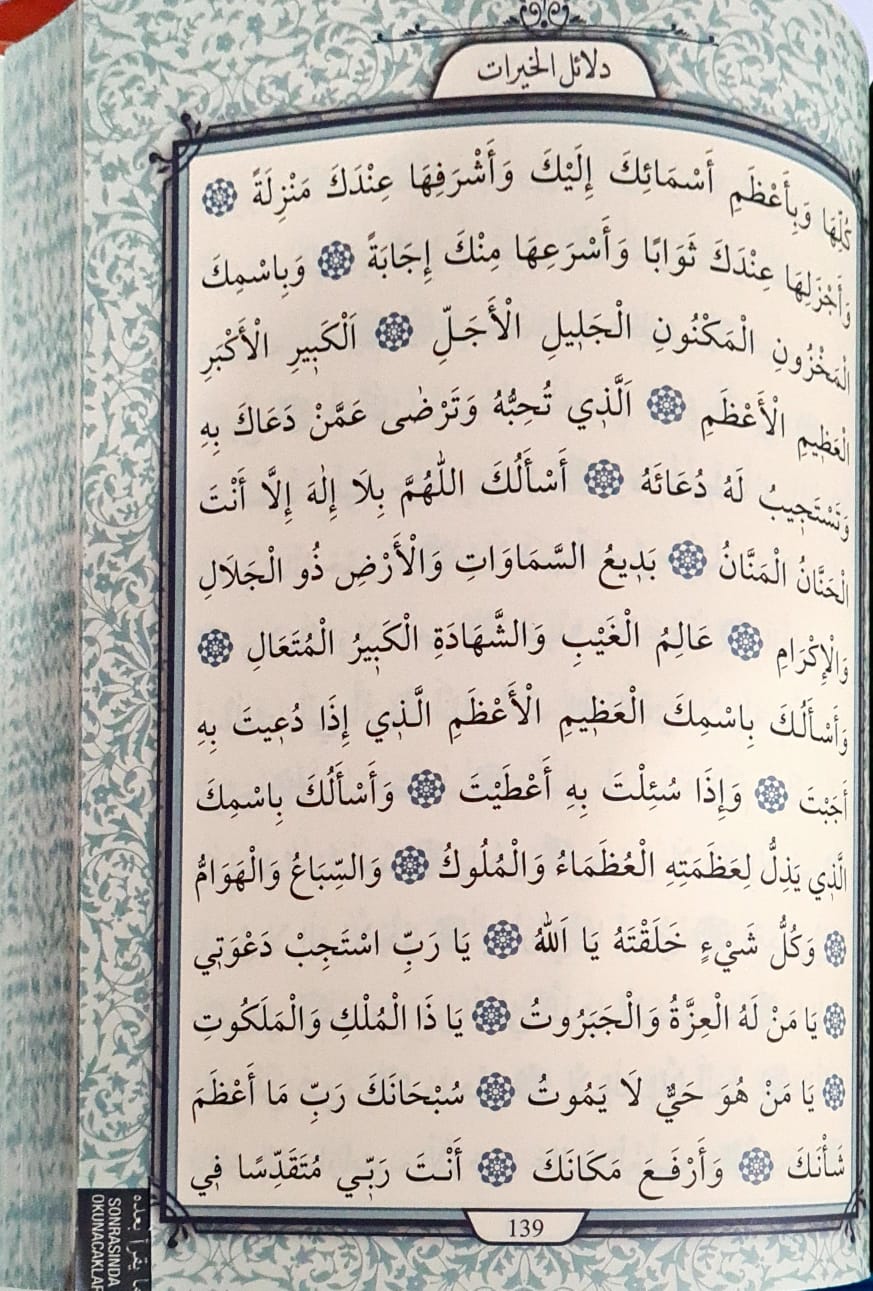 دلائل الخيرات
كُلِّهَا وَبِأَعْظَمِ أَسْمَائِكَ إِلَيْكَ وَأَشْرَفِهَا عِنْدَكَ مَنْزِلَةً
وَأَجْزَلِهَا عِنْدَكَ ثَوَابًا وَأَسْرَعِهَا مِنْكَ إِجَابَةً وَبِاسْمِكَ
الْمَخْزُونِ الْمَكْنُونِ الْجَلِيلِ الْأَجَلِّ اَلْكَبِيرِ الْأَكْبَرِ
الْعَظِيمِ الْأَعْظَمِ اَلَّذِي تُحِبُّهُ وَتَرْضٰى عَمَّنْ دَعَاكَ بِهِ
وَتَسْتَجِيبُ لَهُ دُعَائَهُ أَسْأَلُكَ اللّٰهُمَّ بِلَا إِلٰهَ إِلَّا أَنْتَ
الْحَنَّانُ الْمَنَّانُ بَدِيعُ السَّمَاوَاتِ وَالْأَرْضِ ذُو الْجَلَالِ
وَالْإِكْرَامِ عَالِمُ الْغَيْبِ وَالشَّهَادَةِ الْكَبِيرُ الْمُتَعَالِ
وَأَسْأَلُكَ بِاسْمِكَ الْعَظِيمِ الْأَعْظَمِ الَّذِي إِذَا دُعِيتَ بِهِ
أَجَبْتَ وَإِذَا سُئِلْتَ بِهِ أَعْطَيْتَ وَأَسْأَلُكَ بِاسْمِكَ
الَّذِي يَذِلُّ لِعَظَمَتِهِ الْعُظَمَاءُ وَالْمُلُوكُ وَالسِّبَاعُ وَالْهَوَامُّ
وَكُلُّ شَيْءٍ خَلَقْتَهُ يَا اَللّٰهُ يَا رَبِّ اسْتَجِبْ دَعْوَتِي
يَا مَنْ لَهُ الْعِزَّةُ وَالْجَبَرُوتُ يَا ذَا الْمُلْكِ وَالْمَلَكُوتِ
يَا مَنْ هُوَ حَيٌّ لَا يَمُوتُ سُبْحَانَكَ رَبِّ مَا أَعْظَمَ
شَأْنَكَ وَأَرْفَعَ مَكَانَكَ أَنْتَ رَبِّي مُتَقَدِّسًا فِي
139
ما يقرأ بعده
SONRASINDA
OKUNACAKLAR